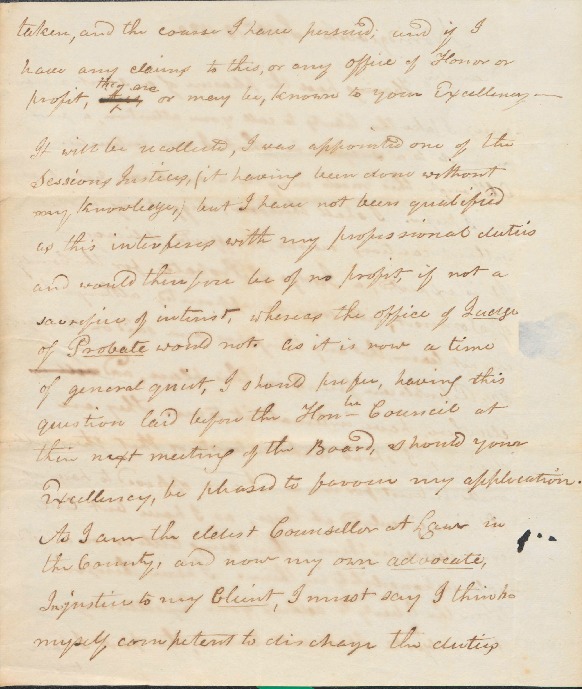 taken, and the course I have persued; and if I
have any claims to this, or any office of Honor or
they are
profit, or may be, known to your Excellency—
It will be recollected, I was appointed one of the
Sessions Justices, (it having been done without
my knowledge,) but I have not been qualified
as this interferes with my professional duties
and would therefore be of no profit, if not a
sacrifice of interest, whereas the office of Judge
of Probate would not. As it is now a time
of general quiet, I should prefer, having this
question laid before the Honble Council at
their next meeting of the Board, should your
Excellency, be pleased to favour my application.
As I am the eldest Counsellor at Law in
the County, and now my own advocate,
Injustice to my Client, I must say I think
myself competent to discharge the duties